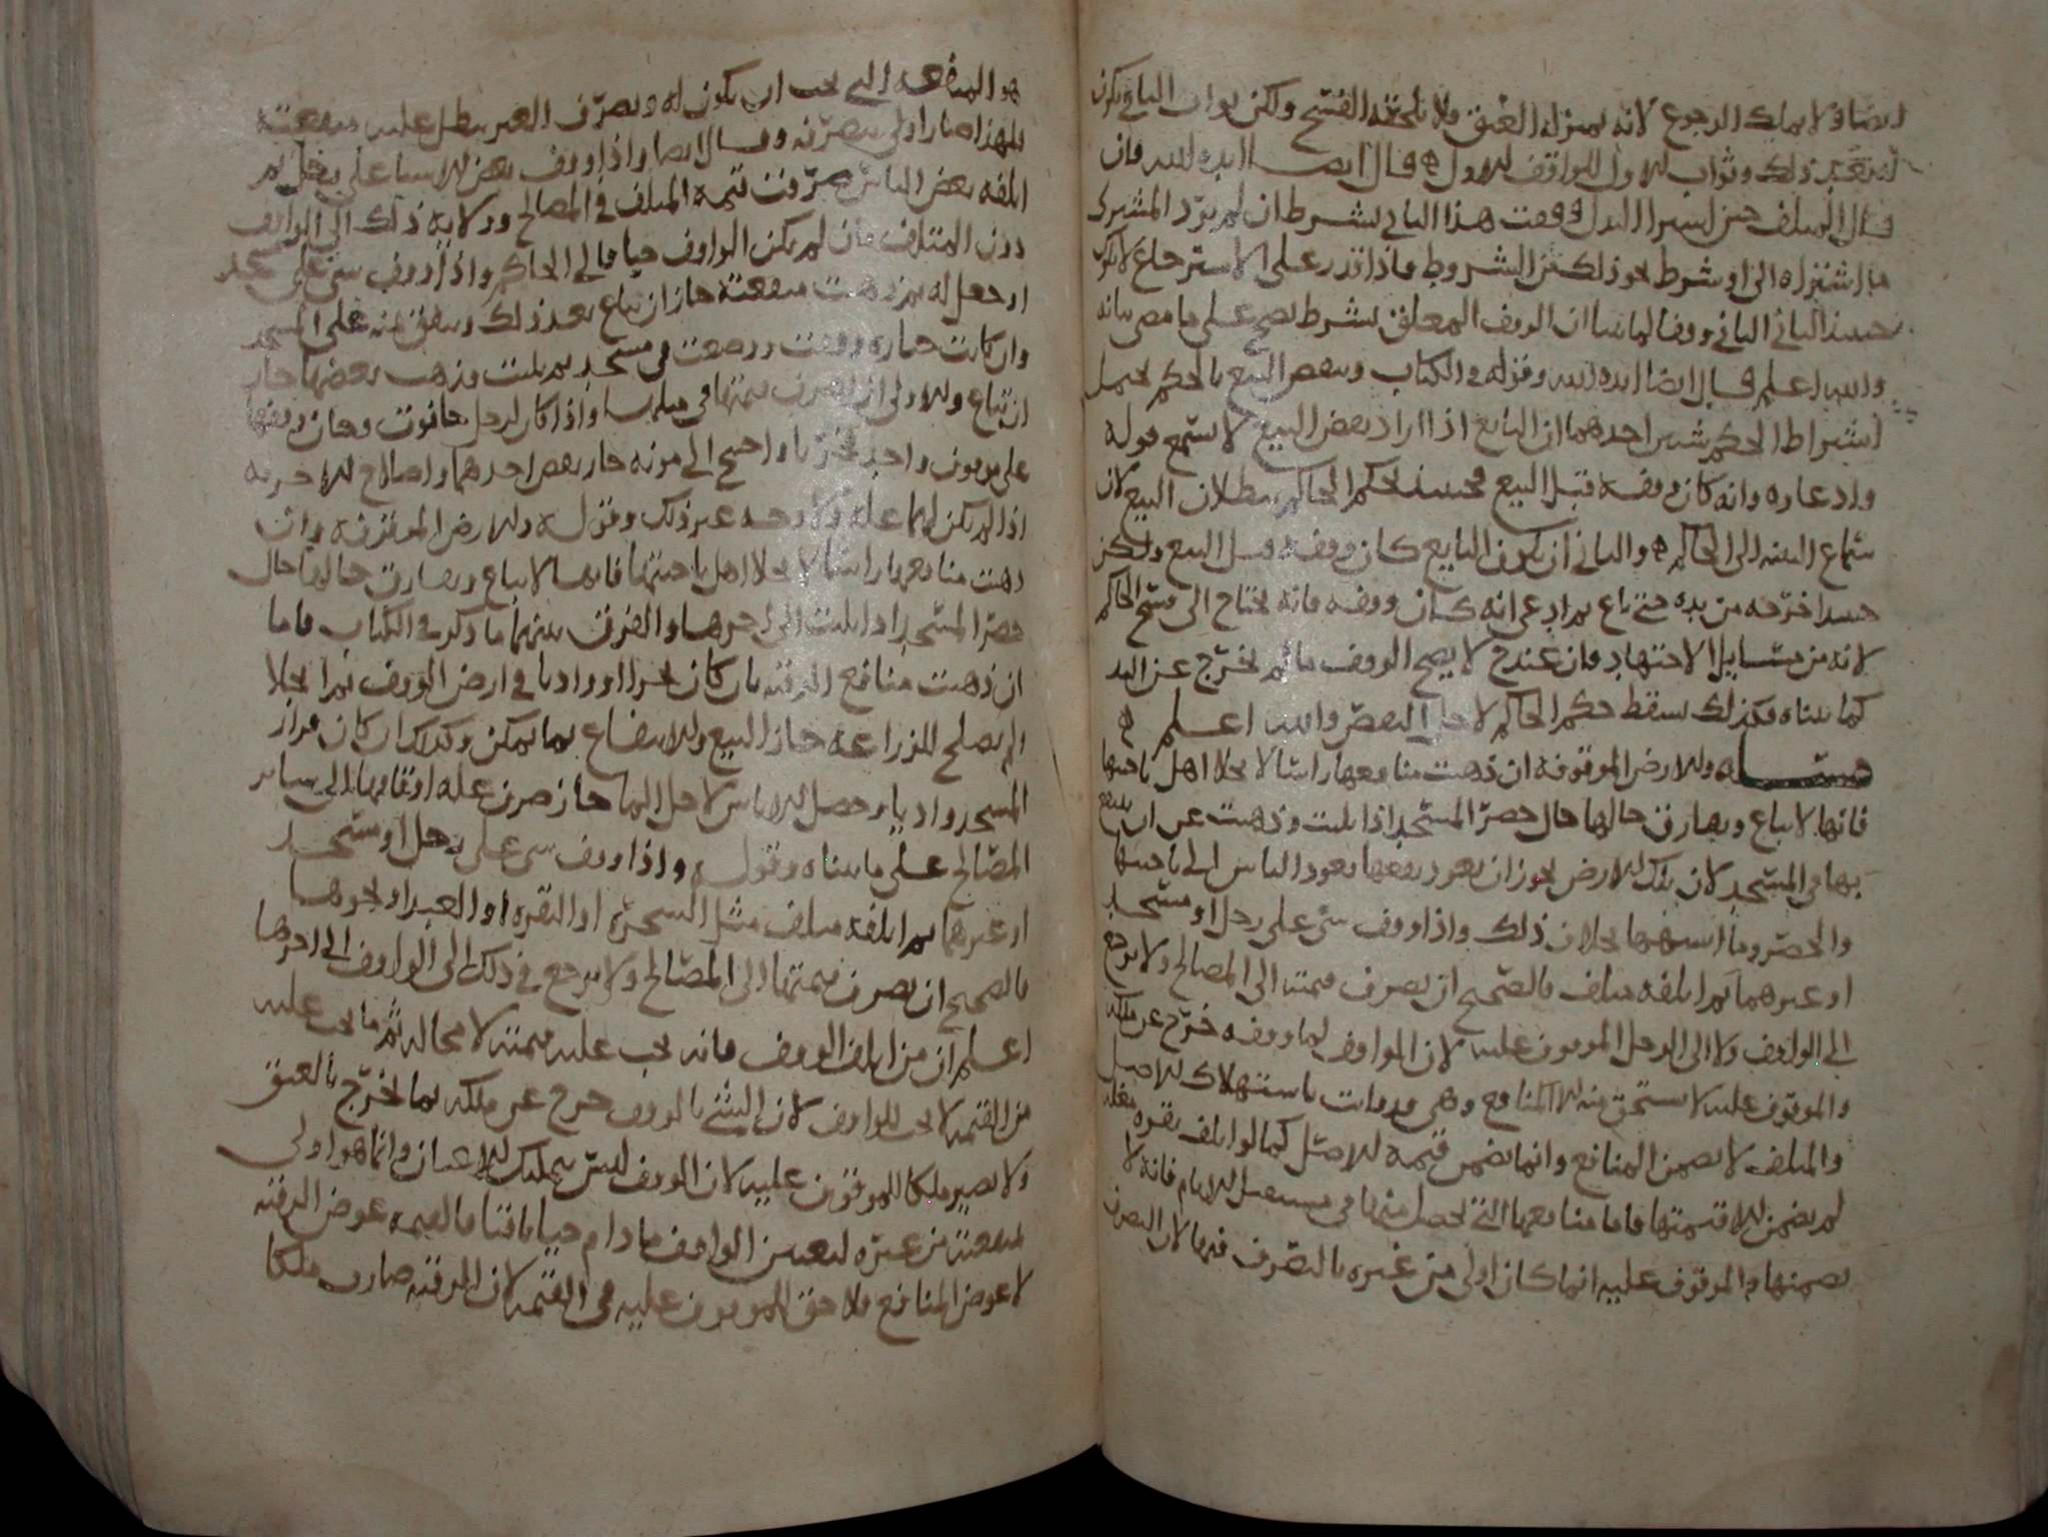 ايضا ولا يملك الرجوع لانه بمنزلة العتق ولا يلحقه الفسخ ولكن ثواب الباقي يكون
لمن بعد ذلك وثواب الاول للواقف الاول قال ايضا ايده الله فان
قال المتلف حين اشترا البدل وقفت هذا الثاني بشرط ان لم يرد المشتري
ما اشتراه الي او شرط نحو ذلك من الشروط فاذا قدر على الاسترجاع لا يكون
حينئذ الثاني وقفا لما بينا ان الوقف المعلق بشرط يصح على ما مضى بيانه
والله اعلم قال ايضا ايده الله وقوله في الكتاب وينقض البيع بالحكم يحتمل
اشتراط الحكم شيئين احدهما ان البايع اذا اراد نقض البيع لا يسمع قوله
وادعاوه وانه كان وقفه قبل البيع فحينئذ يحكم الحاكم ببطلان البيع لان
سماع البينة الى الحاكم والثاني ان يكون البايع كان وقفه قبل البيع ولكن
اخرجه من يده حتى باع ثم ادعى انه كان وقفه فانه يحتاج الى فسخ الحاكم
لانه من مسايل الاجتهاد فان عند ح لا يصح الوقف ما لم يخرج عن اليد
كما بيناه فكذلك يسقط حكم الحاكم لاجل النقض والله اعلم
مسئلة والارض الموقوفة ان ذهبت منافعها راسا لانجلا اهل ناحيتها
فانها لا تباع ويفارق حالها حال حصر المسجد اذا بليت وذهبت عن ان ينتفع
بها في المسجد لان تلك الارض يجوز ان يعود نفعها بعود الناس الى ناحيتها
والحصر وما اشبهها بخلاف ذلك واذا وقف شي على رجل او مسجد
او غيرهما ثم اتلفه متلف فالصحيح ان يصرف قيمته الى المصالح ولا يرجع
الى الواقف ولا الى الرجل الموقوف عليه لان الواقف لما وقفه خرج عن ملكه
والموقوف عليه لا يستحق منه الا المنافع وهي قد فاتت باستهلاك الاصل
والمتلف لا يضمن المنافع وانما يضمن قيمة الاصل كما لو اتلف بقرة
لم يضمن الا قيمتها فاما منافعها التي تحصل منها في مستقبل الايام فانه لا
يضمنها والموقوف عليه انما كان اولى من غيره بالتصرف فيها لان التصرف
هو المنافعة التي يجب ان يكون له وتصرف الغير يبطل عليه منفعته
فلهذا صار اولى بتصرفه وقال ايضا واذا وقف بعض الاشيا على رجل ثم
اتلفه بعض الناس صرفت قيمة المتلف في المصالح وولاية ذلك الى الواقف
دون المتلف فان لم يكن الواقف حيا فالى الحاكم واذا وقف شي على مسجد
او جعل له ثم ذهبت منفعته جاز ان تباع بعد ذلك وينفق ثمنه على المسجد
وان كانت حجارة وقفت ووضعت في مسجد ثم بليت وذهب بعضها جاز
ان تباع والاولى ان يصرف ثمنها في مثلها واذا كان لرجل حانوت وخان وقفهما
على موقوف واحد فخربا واحتيج الى مونة جاز نقض احدهما واصلاح الاخر به
اذا لم يكن لهما غلة ولا وجه غير ذلك وقوله والارض الموقوفة وان
ذهبت منافعها راسا لانجلا اهل ناحيتها فانها لا تباع ويفارق حالها حال
حصر المسجد اذا بليت الى اخرها والفرق بينهما ما ذكر في الكتاب فاما
ان ذهبت منافع الرقبة بان كان بحرا او واديا في ارض الوقف ثم انجلا
ولم يصلح للزراعة جاز البيع والانتفاع بما يمكن وكذلك ان كان قرار
المسجد واديا وحصل الاياس لاجل الما جاز صرف غلة اوقافها الى ساير
المصالح على ما بيناه وقوله واذا وقف شي على رجل او مسجد
او غيرهما ثم اتلفه متلف مثل الشجرة او البقرة او العبد او نحوها
فالصحيح ان يصرف قيمتها الى المصالح ولا يرجع في ذلك الى الواقف الى اخرها
اعلم ان من اتلف الوقف فانه يجب عليه قيمته لا محالة ثم ما يجب عليه
من القيمة لا يجب للواقف لان الشي بالوقف خرج عن ملكه بما يخرج بالعتق
ولا يصير ملكا للموقوف عليه لان الوقف ليس بتمليك للاعيان وانما هو اولى
بمنفعته من غيره لتعيين الواقف ما دام حيا باقيا فالقيمة عوض الرقبة
لا عوض المنافع ولا حق للموقوف عليه في القيمة لان الرقبة صارت ملكا